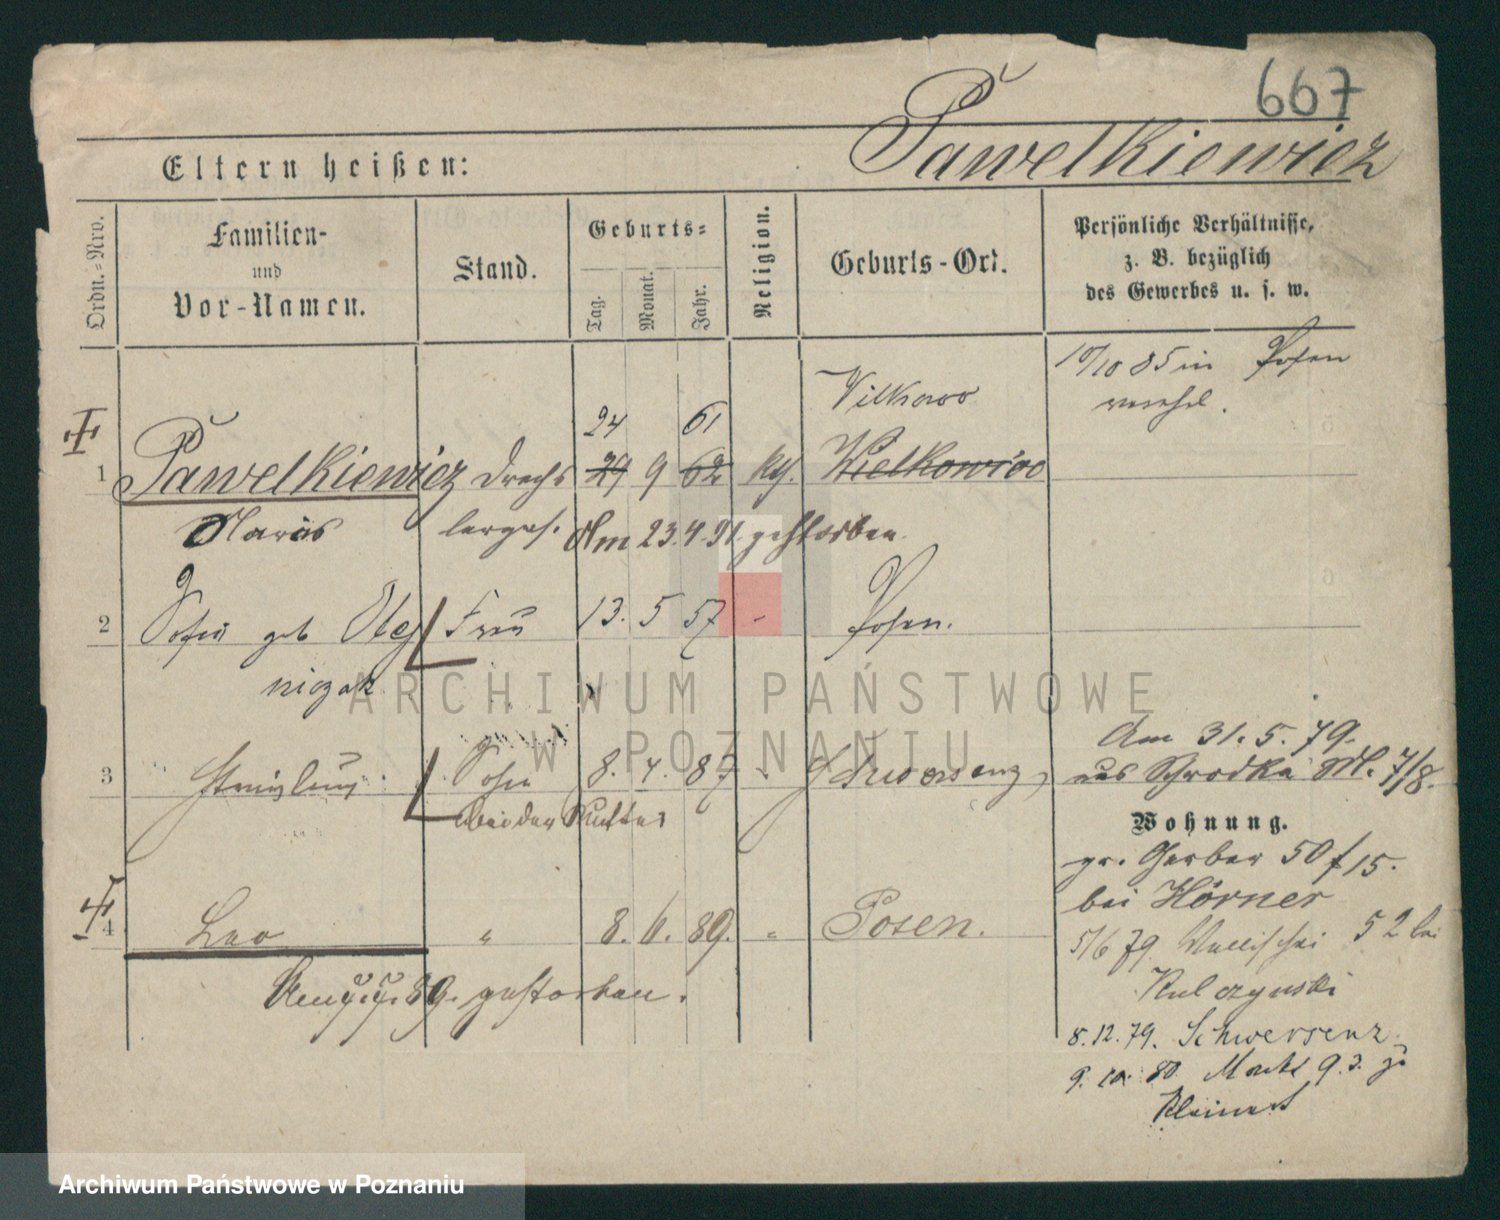 667
Pawelkiewicz
Eltern heißen:
Ordn.=Nro.
Familien-
und
Vor-Namen.
Stand.
Geburts=
Tag.
Monat.
Jahr.
Religion.
Geburts-Ort.
Persönliche Verhältnisse,
z. B. bezüglich
des Gewerbes u. s. w.
10/10 85 in Posen
verehel.
24 61 Vilkowo
1 Pawelkiewicz Drechs 29 9 62 kth. Wielkowioo
lerges. Am 23.4.91. gestorben.
2 Sofia geb Olej Frau 13. 5 57 - Posen.
niczak
3 Stanislaus Sohn 8. 4. 87 - Schwersenz
bei der Mutter
Am 31.5.79.
aus Schrodka M. 7/8.
Wohnung.
gr. Gerber 50 f 15.
bei Hörner
4 Leo " 8. 6. 89. " Posen.
5/6 79. Wallischei 52 bei
Kulczynski
89. gestorben.
8.12.79. Schwersenz
9. 10. 80. Markt 93. zu
ARCHIWUM PAŃSTWOWE
W POZNANIU
Archiwum Państwowe w Poznaniu